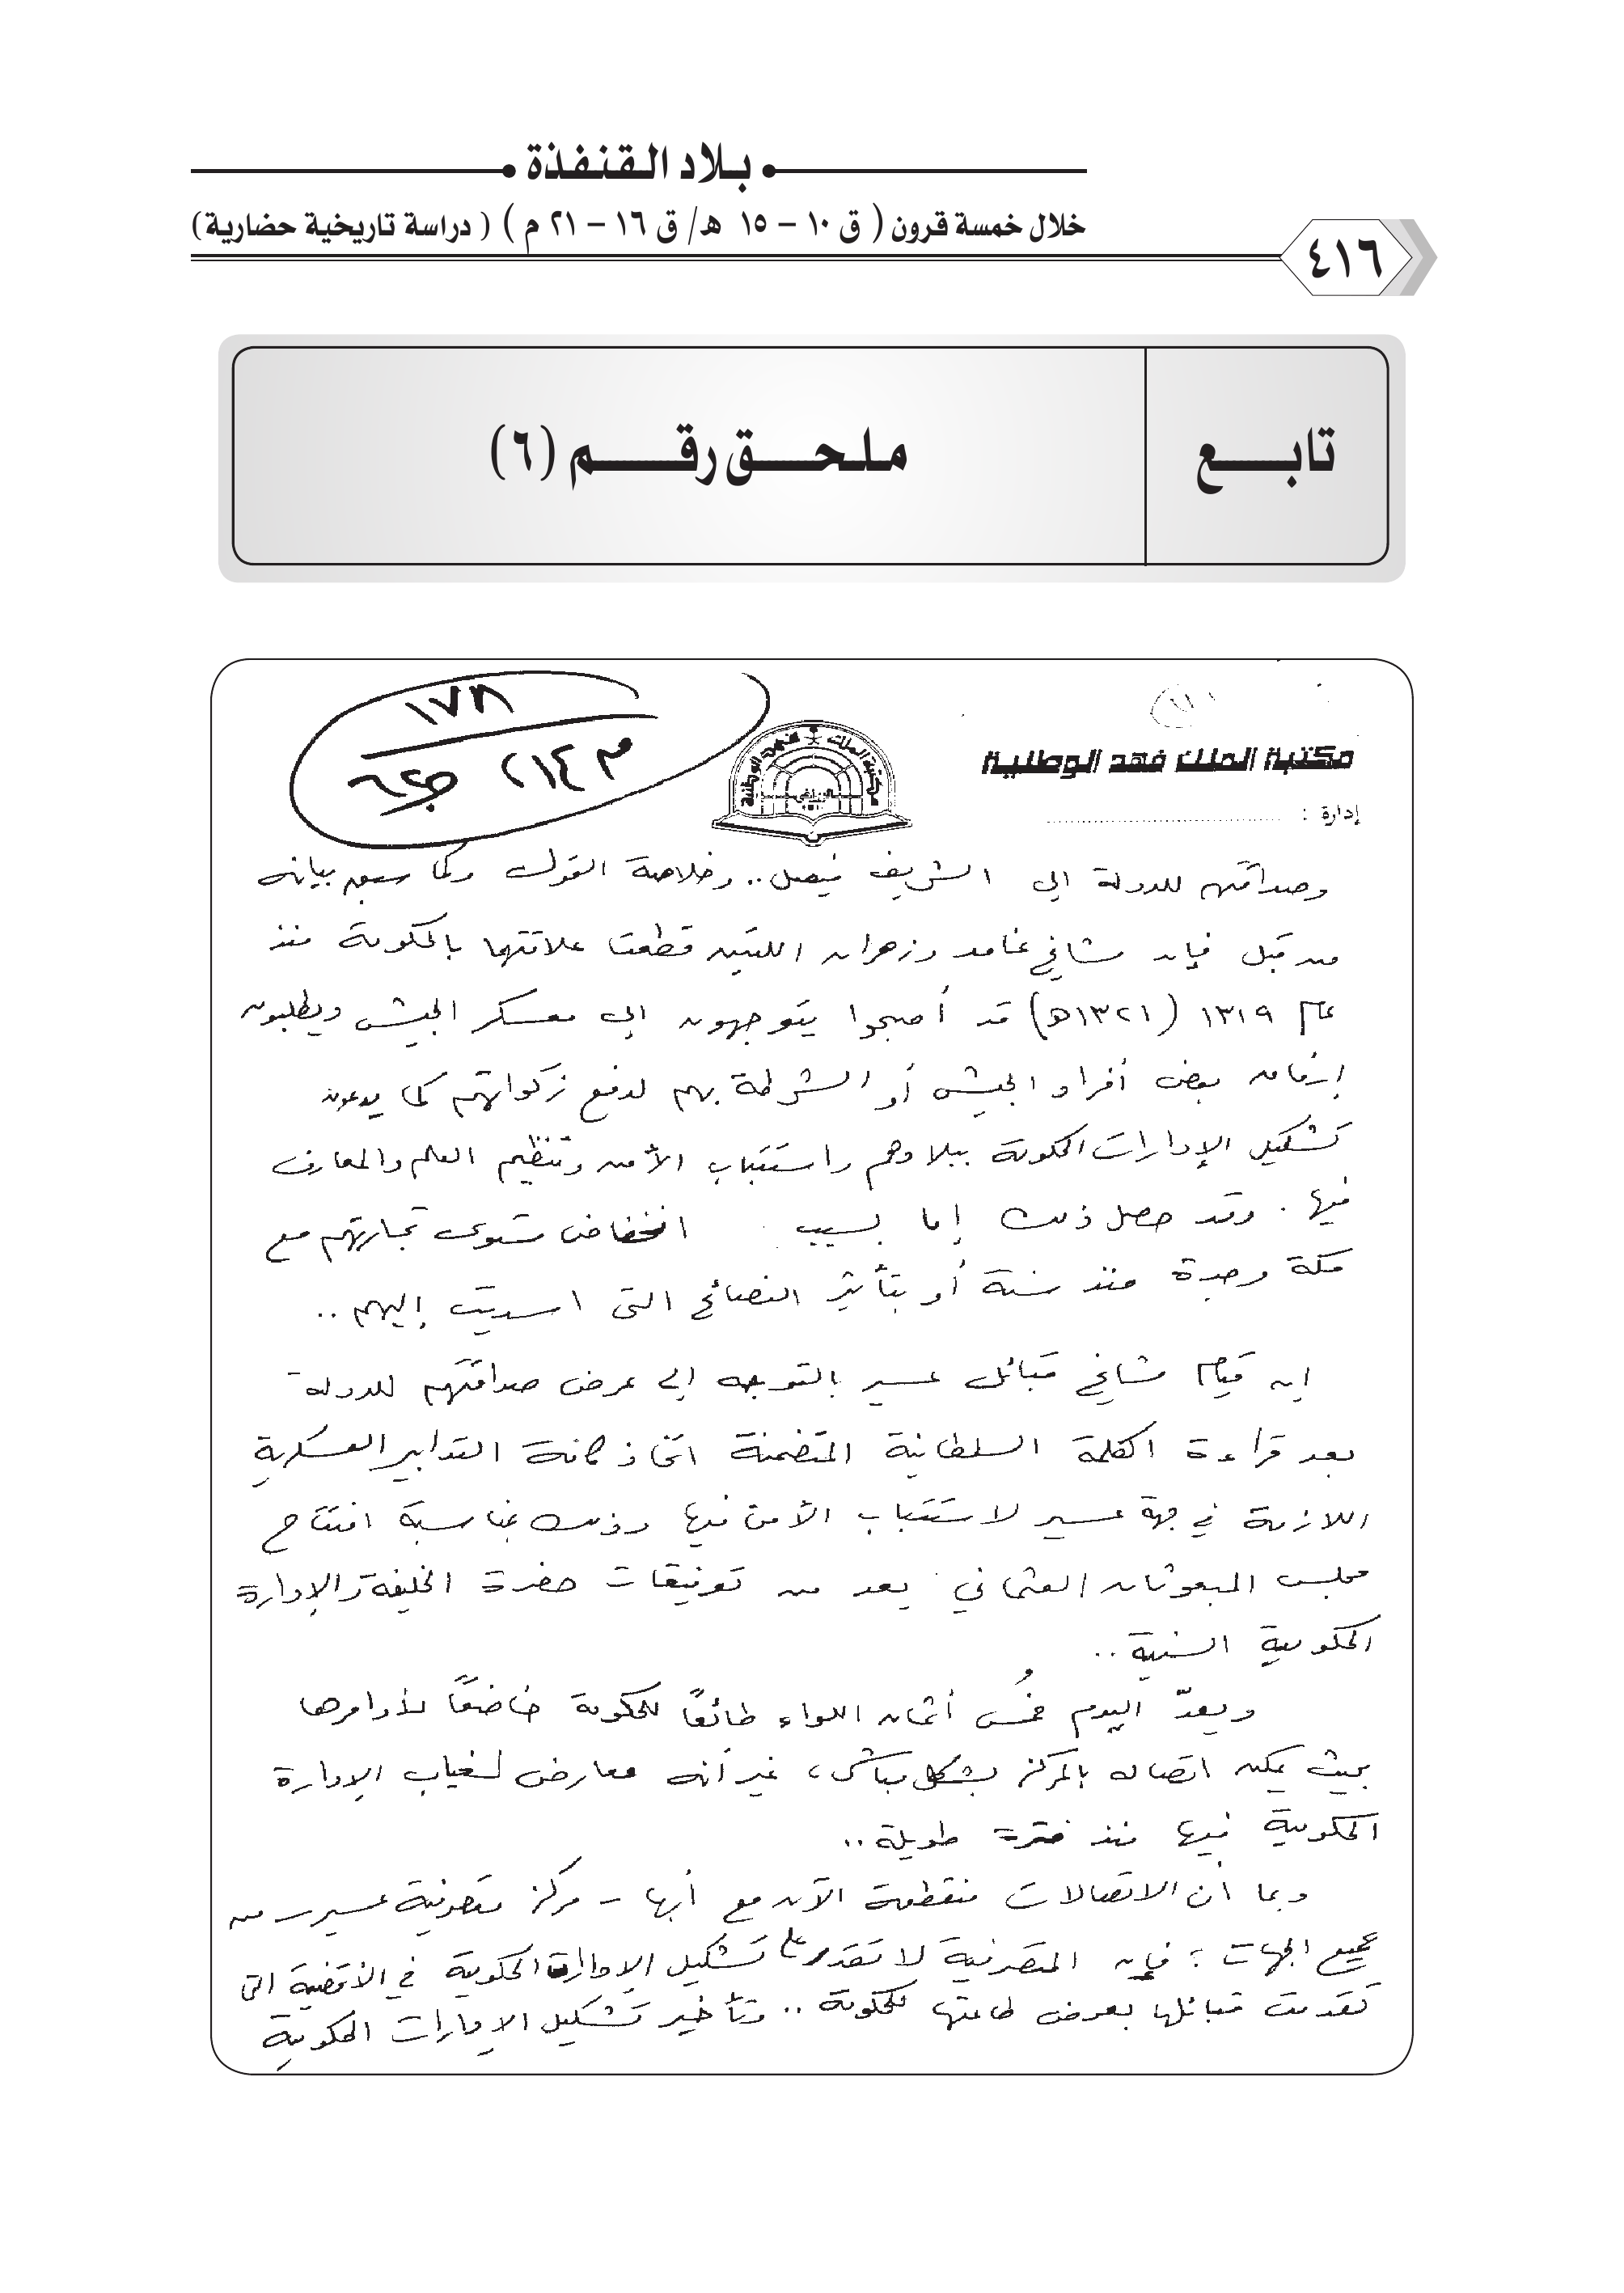 بلاد القنفذة
خلال خمسة قرون ( ق ١٠ – ١٥ هـ/ ق ١٦ – ٢١ م ) ( دراسة تاريخية حضارية)
٤١٦
تابع
ملحق رقم (٦)
١٧٨
م ٢١٤
مكتبة الملك فهد الوطنية
إدارة :
وصداقتهم للدولة الى الشريف فيصل .. وخلاصة القول وكما سبق بيانه
من قبل فإن مشايخ غامد وزهران اللتين قطعتا علاقتهما بالحكومة منذ
عام ١٣١٩ (١٣٢١هـ) قد أصبحوا يتوجهون إلى معسكر الجيش ويطلبون
إرفاق بعض أفراد الجيش أو الشرطة بهم لدفع زكواتهم كما يدعون
تشكيل الإدارات الحكومة ببلادهم واستتباب الأمن وتنظيم العلم والمعارف
فيها . وقد حصل ذلك إما بسبب انخفاض مستوى تجارتهم مع
مكة وجدة منذ سنة أو بتأثير النصائح التى اسديت إليهم ..
إن قيام مشايخ قبائل عسير بالتوجه إلى عرض صداقتهم للدولة
بعد قراءة الكلمة السلطانية المتضمنة اتخاذ كافة التدابير العسكرية
اللازمة في جهة عسير لاستتباب الأمن فيها وذلك بمناسبة افتتاح
مجلس المبعوثان العثماني يعد من توفيقات حضرة الخليفة والإدارة
الحكومية السنية ..
ويعدّ اليوم خمُس أثمان اللواء طائعًا للحكومة خاضعًا لأوامرها
بحيث يمكن اتصاله بالمركز بشكل مباشر، غير أنه معارض لغياب الإدارة
الحكومية فيها منذ فترة طويلة ..
وبما أن الاتصالات منقطعة الآن مع أبها - مركز متصرفية عسير - من
جميع الجهات ؛ فإن المتصرفية لا تقدر على تشكيل الإدارة الحكومية في الأقضية التى
تقدمت قبائلها بعرض طاعتها للحكومة .. وتأخير تشكيل الإدارات الحكومية